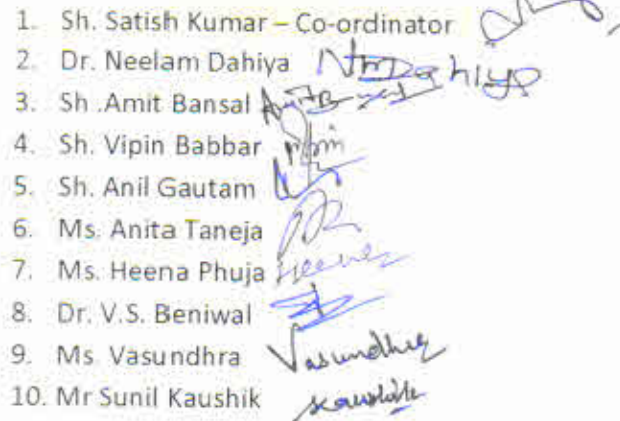 1. Sh. Satish Kumar – Co-ordinator
2. Dr. Neelam Dahiya NmDahiya
3. Sh .Amit Bansal
4. Sh. Vipin Babbar
5. Sh. Anil Gautam
6. Ms. Anita Taneja
7. Ms. Heena Phuja Heena
8. Dr. V.S. Beniwal
9. Ms. Vasundhra Vasundhra
10. Mr Sunil Kaushik Kaushik